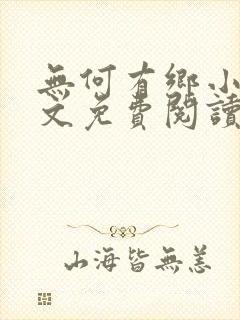 無何有鄉小
文免費閱讀
山海皆無恙